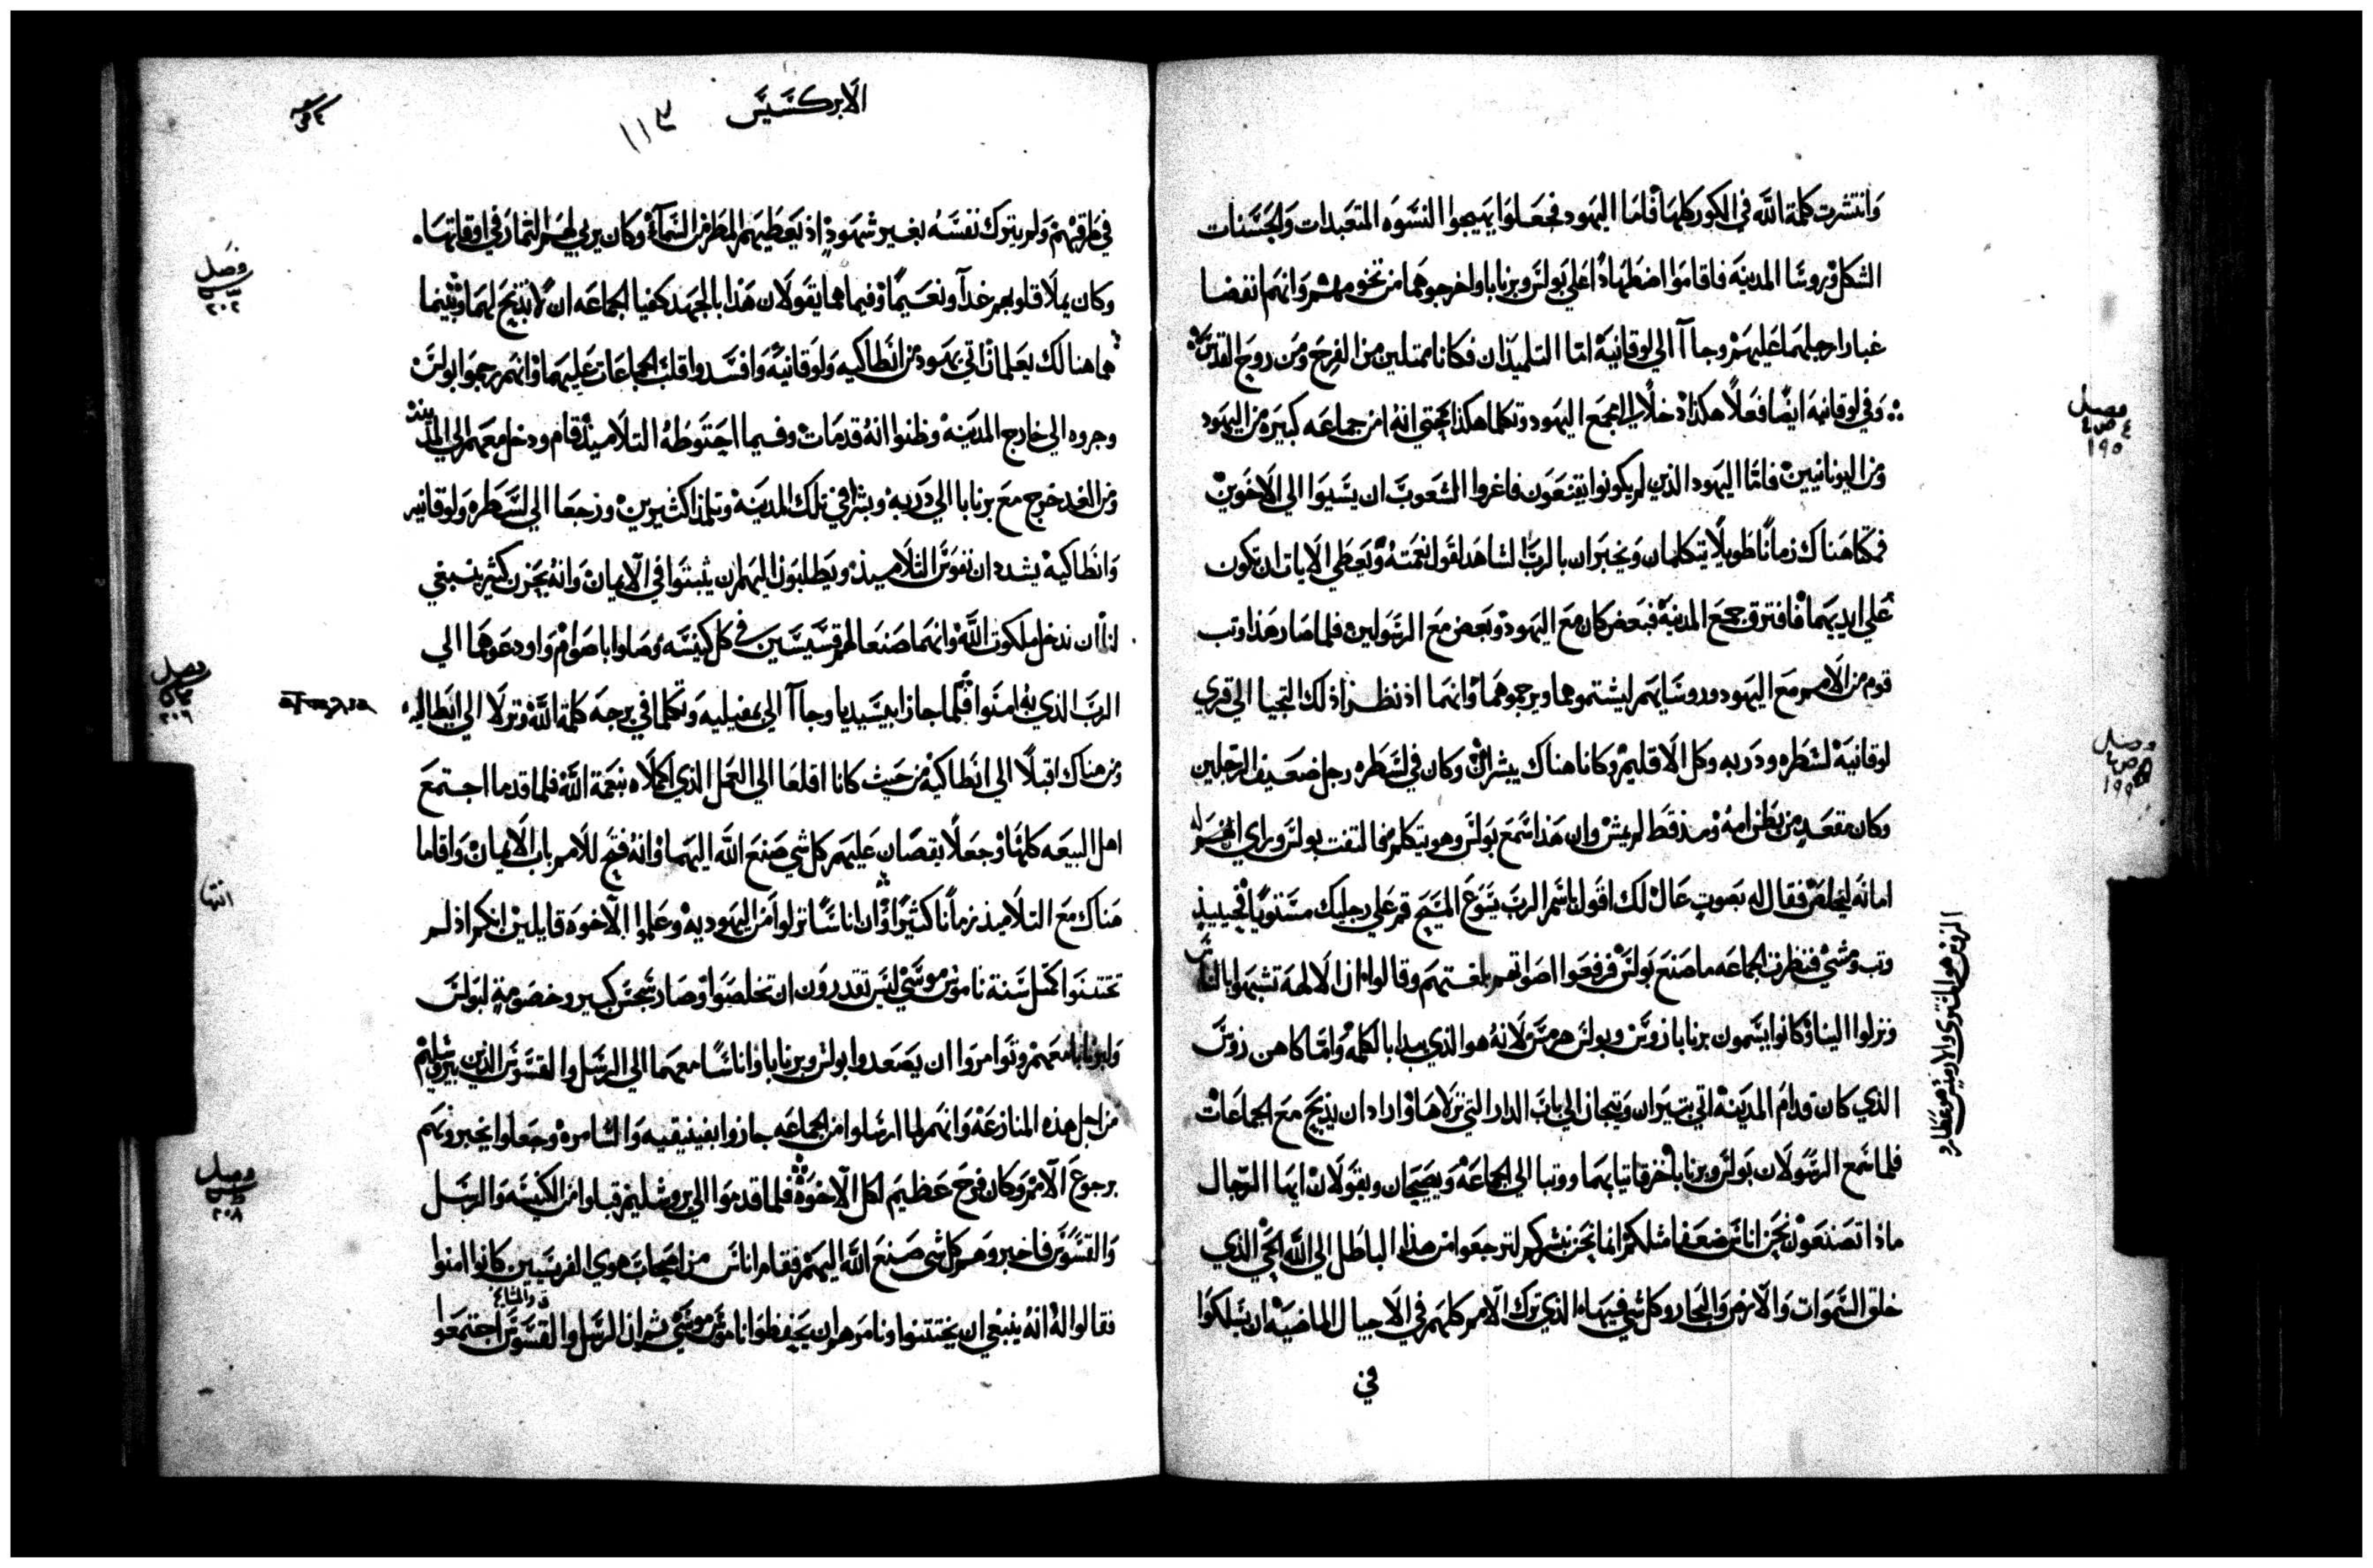 وانتشرت كلمة الله في الكور كلها فاما اليهود فجعلوا يهيجوا النسوه المتعبدات والحسنات
الشكل وروسا المدينه فاقاموا اضطهادًا علي بولس وبرنابا واخرجوهما من تخومهم وانهم انفضا
غبار ارجلهما عليهم وجاآ الي لوقانيه اما التلميذان فكانا ممتلين من الفرح ومن روح القدس
وفي لوقانيه ايضًا فعلا هكذا دخلا الي مجمع اليهود وتكلما هكذا حتي انه امن جماعه كبيره من اليهود
ومن اليونانيين فاما اليهود الذين لم يكونوا يقنعون فاغروا الشعوب ان يسيوا الي الاخوين
فمكثا هناك زمانًا طويلًا يتكلمان ويخبران بالرب الشاهد لقول نعمته ويعطي الايات ان تكون
علي ايديهما فافترق جمع المدينه فبعض كان مع اليهود وبعض مع الرسولين فلما صار هذا وتب
قوم من الامم مع اليهود وروسايهم ليشتموهما ويرجموهما وانهما اذ نظرا ذلك التجيا الي قري
لوقانية لسطره ودربه وكل الاقليم وكانا هناك يبشران وكان في لسطره رجل ضعيف الرجلين
وكان مقعد من بطن امه ومنذ قط لم يمش وان هذا سمع بولس وهو يتكلم فالتفت بولس وراي ان له
امانه ليخلص فقال له بصوت عال لك اقول باسم الرب يسوع المسيح قم علي رجليك مستويًا فحينيذ
وتب ومشي فنظرت الجماعه ما صنع بولس فرفعوا اصواتهم بلغتهم وقالوا ان الالهة تشبهوا بالناس
ونزلوا الينا وكانوا يسمون برنابا زوس وبولس هرمس لانه هو الذي يبدا بالكلمه واما كاهن زوس
الذي كان قدام المدينه اتي بتيران وتيجان الي باب الدار التي نزلاها واراد ان يذبح مع الجماعات
فلما سمع الرسولان بولس وبرنابا خرقا ثيابهما ووتبا الي الجماعه ويصيحان ويقولان ايها الرجال
ماذا تصنعون نحن اناس ضعفا مثلكم انما نحن نبشركم لترجعوا من هذا الباطل الي الله الحي الذي
خلق السموات والارض والبحار وكل شي فيها الذي ترك الامم كلهم في الاجيال الماضيه ان يسلكوا
في
فصل
١٩٥
فصل
١٩٩
الزوس هو المشتري والارميس هو عطارد
الابركسيس
١١٣
في طرقهم ولم يترك نفسه بغير شهود اذ يعطيهم المطر من السماء وكان يربي لهم الثمار في اوقاتها
وكان يملا قلوبهم غدآ ونعيمًا وفيما هما يقولان هذا بالجهد كفيا الجماعه ان لا تذبح لهما وبينما
هما هنالك يعلمان اتي يهود من انطاكيه ولوقانيه وافسدوا قلب الجماعات عليهما وانهم رجموا بولس
وجروه الي خارج المدينه وظنوا انه قد مات وفيما احتوطه التلاميذ قام ودخل معهم الي المدينه
ومن الغد خرج مع برنابا الي دربه وبشرا في تلك المدينه وتلمذا كثيرين ورجعا الي لسطره ولوقانيه
وانطاكيه يشددان نفوس التلاميذ ويطلبون اليهم ان يثبتوا في الايمان وانه بحزن كثير ينبغي
لنا ان ندخل ملكوت الله وانهما صنعا لهم قسيسين في كل كنيسه وصلوا باصوام واودعوهما الي
الرب الذي به امنوا فلما جازا بيسيديا وجاآ الي بمفيليه وتكلما في برجه كلمة الله ونزلا الي انطاليه
ومن هناك اقبلا الي انطاكيه من حيث كانا اقلعا الي العمل الذي اكملاه بنعمة الله فلما قدما اجتمع
اهل البيعه كلها وجعلا يقصان عليهم كل شي صنع الله اليهما وانه فتح للامم باب الايمان واقاما
هناك مع التلاميذ زمانًا كثيرًا وان اناسًا نزلوا من اليهوديه وعلموا الاخوه قايلين انكم اذ لم
تختتنوا كمثل سنة ناموس موسي ليس تقدرون ان تخلصوا وصار شجس كبير وخصومة لبولس
ولبرنابا معهم وتوامروا ان يصعدوا بولس وبرنابا واناسًا معهما الي الرسل والقسوس الذين بيروشليم
من اجل هذه المنازعه وانهم لما ارسلوا من الجماعه جازوا بفينيقيه والسامره وجعلوا يخبرونهم
برجوع الامم وكان فرح عظيم لكل الاخوه فلما قدموا الي يروشليم قبلوا من الكنيسه والرسل
والقسوس فاخبروهم كل شي صنع الله اليهم فقام اناس من اصحاب هوي الفريسيين كانوا امنوا
فقالوا له انه ينبغي ان يختتنوا ونامرهم ان يحفظوا ناموس موسي ثم ان الرسل والقسوس اجتمعوا
فصل
٢٠٢
فصل
٢٠٦
انتها
فصل
٢٠٨